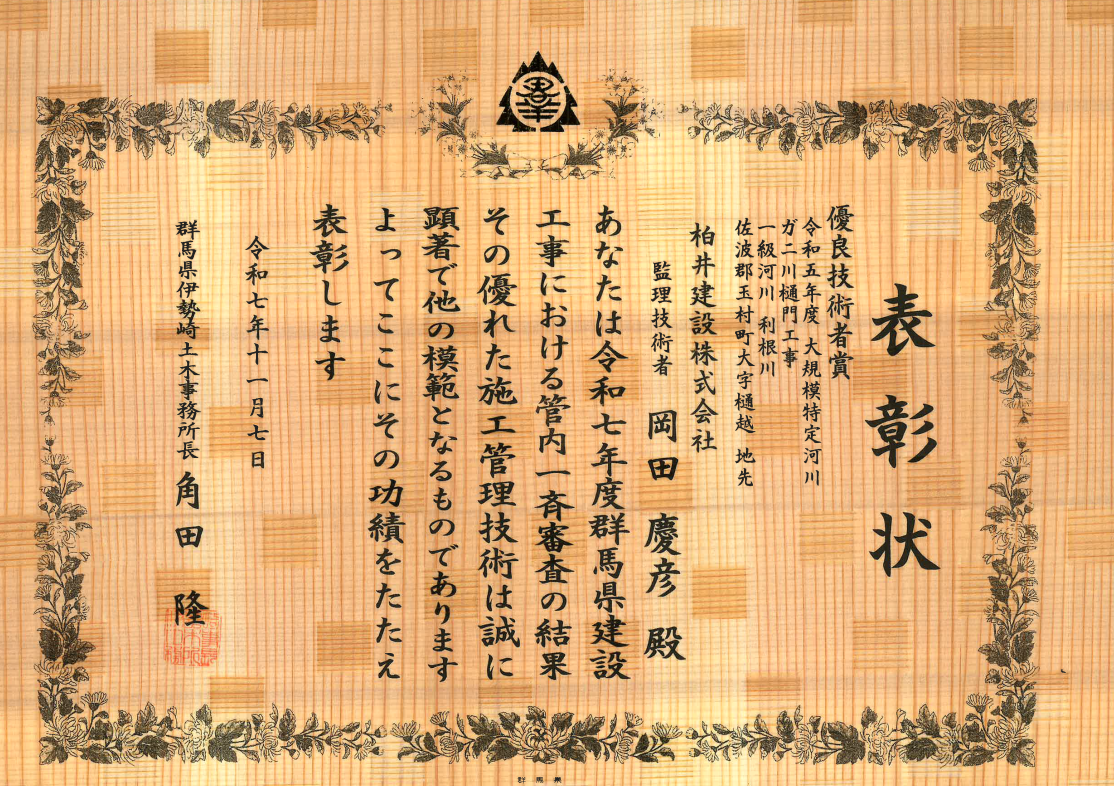 表彰状
優良技術者賞
令和五年度 大規模特定河川
ガニ川樋門工事
一級河川 利根川
佐波郡玉村町大字樋越 地先
柏井建設株式会社
監理技術者 岡田 慶彦 殿
あなたは令和七年度群馬県建設
工事における管内一斉審査の結果
その優れた施工管理技術は誠に
顕著で他の模範となるものであります
よってここにその功績をたたえ
表彰します
令和七年十一月七日
群馬県伊勢崎土木事務所長 角田 隆
群馬県